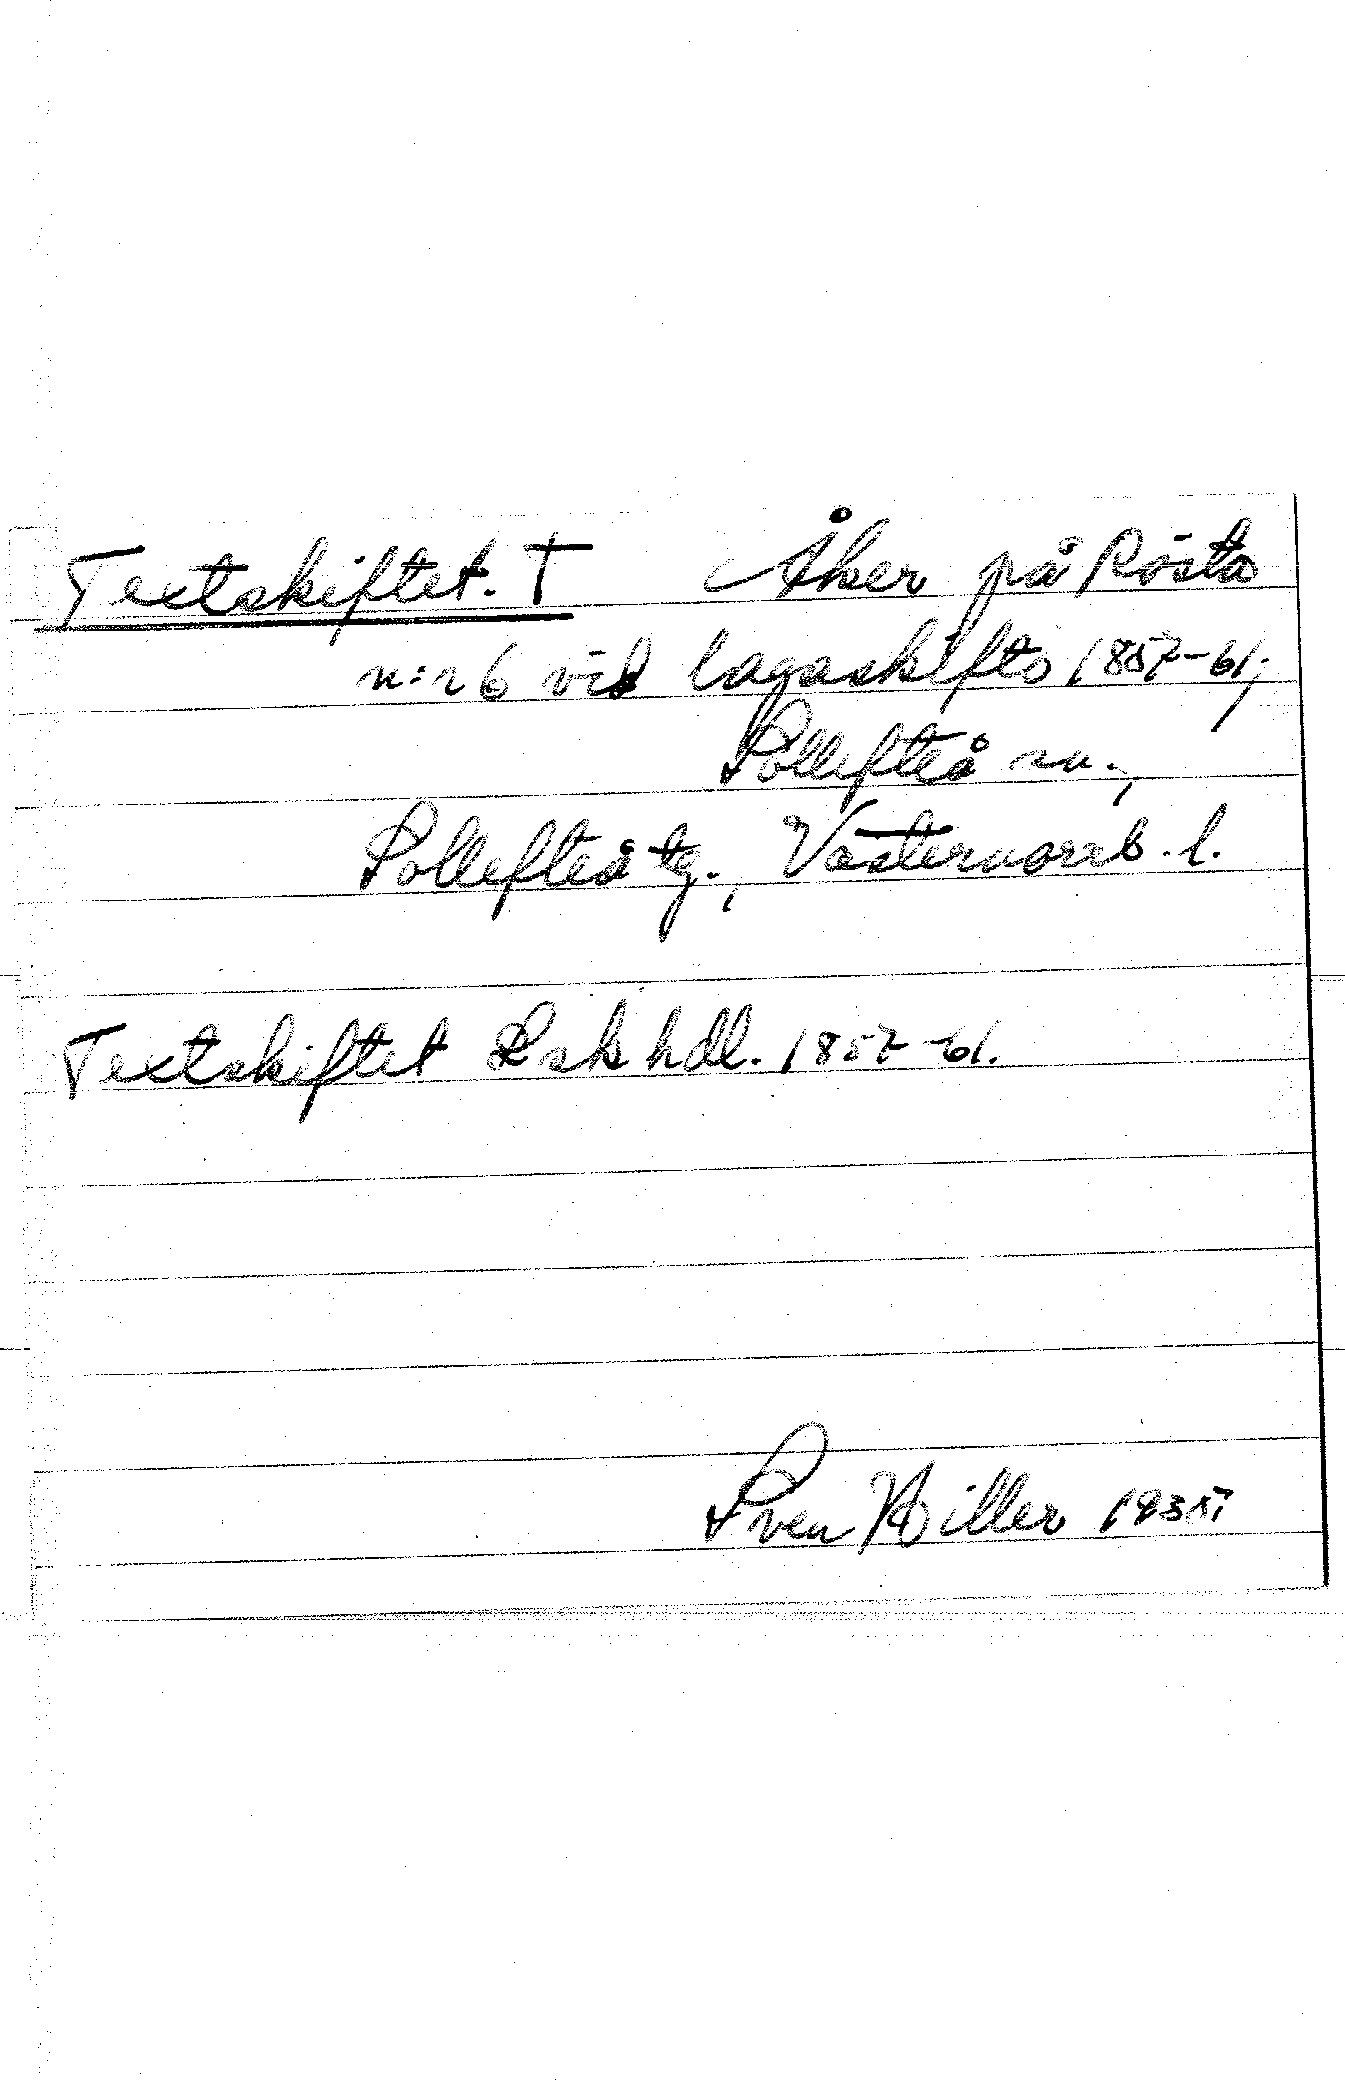 Textskiftet. † Åker på Rösta
n:r 6 vid lagaskifte 1857-61;
Sollefteå sn.,
Sollefteå tg., Västernorrl. l.
Textskiftet Lsk hdl. 1857-61.
Sven Hiller 1935